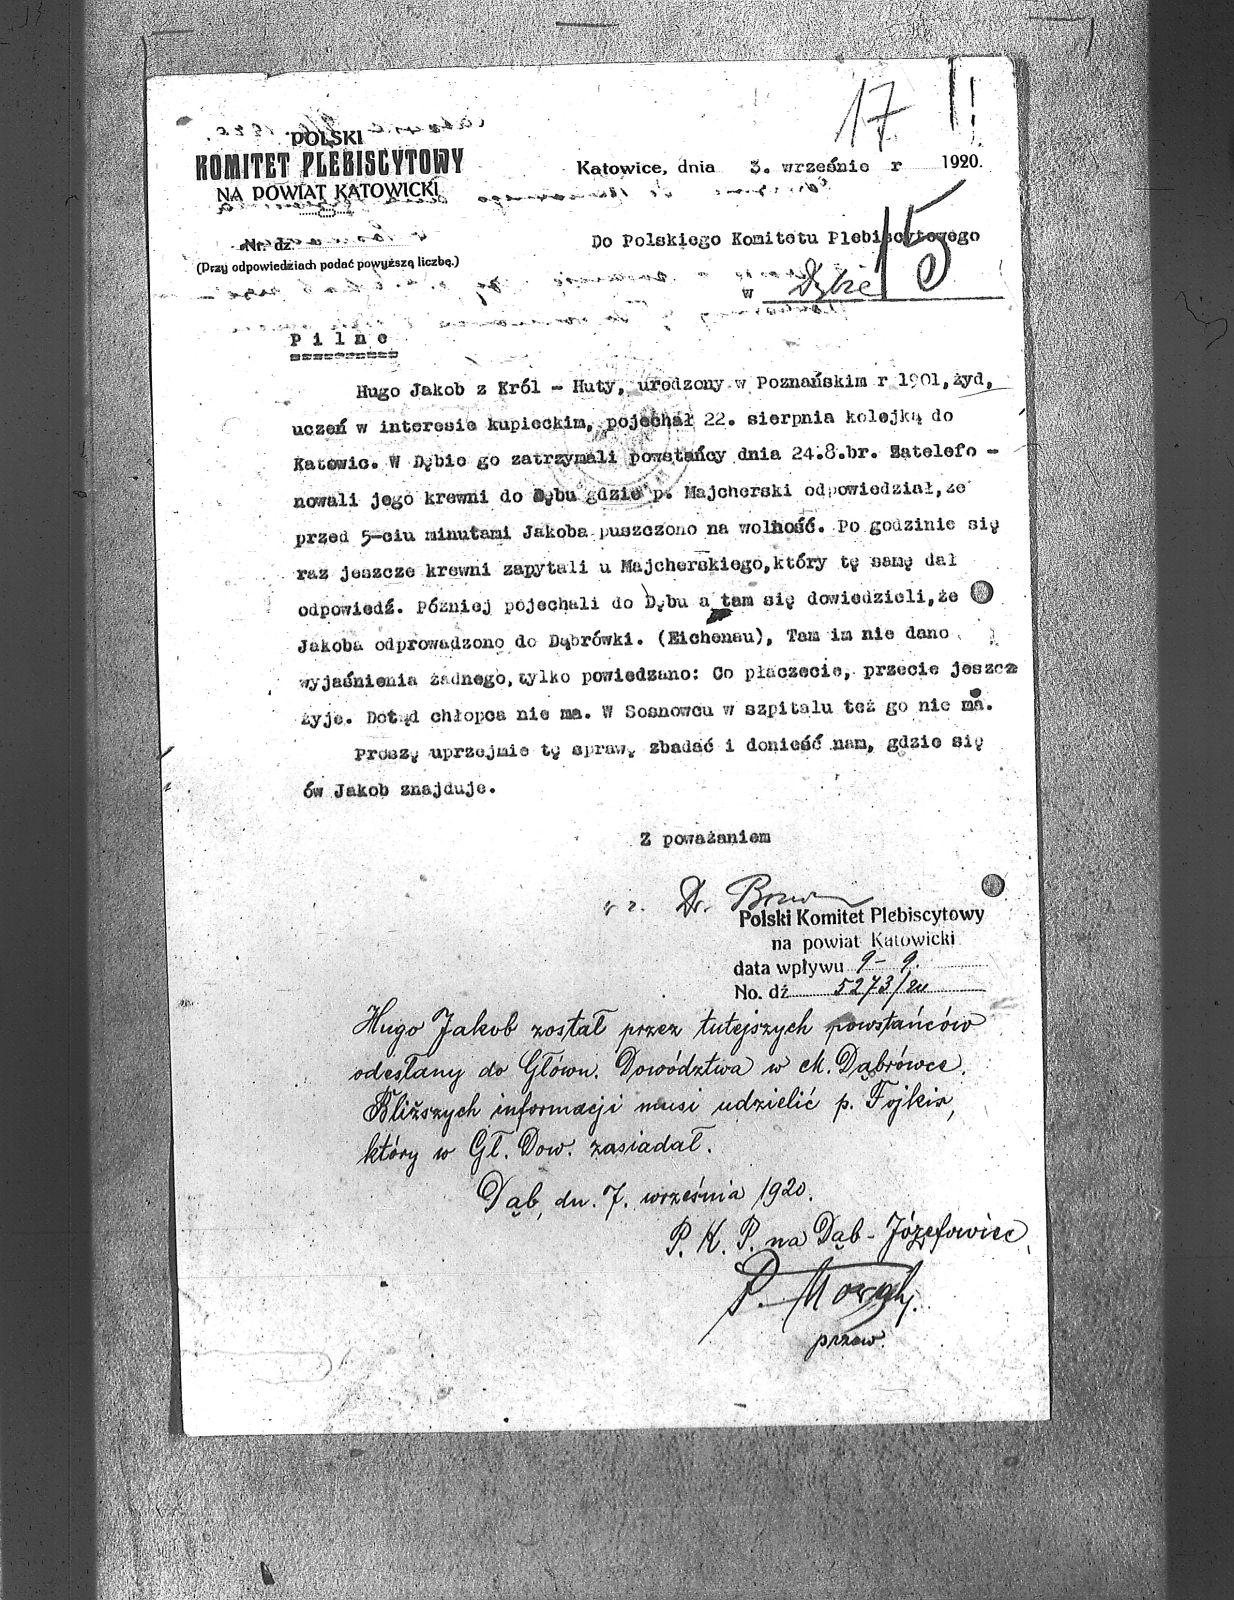 17
POLSKI
KOMITET PLEBISCYTOWY
NA POWIAT KATOWICKI
Katowice, dnia 3. wrześnie r 1920.
Nr. dz.
(Przy odpowiedziach podać powyższą liczbę.)
Do Polskiego Komitetu Plebiscytowego
15
w Dębie
Pilne
Hugo Jakob z Król - Huty, urodzony w Poznańskim r 1901, żyd,
uczeń w interesie kupieckim, pojechał 22. sierpnia kolejką do
Katowic. W Dębie go zatrzymali powstańcy dnia 24.8.br. Zatelefo -
nowali jego krewni do Dębu gdzie p. Majcherski odpowiedział, że
przed 5-ciu minutami Jakoba puszczono na wolność. Po godzinie się
raz jeszcze krewni zapytali u Majcherskiego, który tę samę dał
odpowiedź. Później pojechali do Dębu a tam się dowiedzieli, że
Jakoba odprowadzono do Dąbrówki. (Eichenau), Tam im nie dano
wyjaśnienia żadnego, tylko powiedzano: Co płaczecie, przecie jeszcze
żyje. Dotąd chłopca nie ma. W Sosnowcu w szpitalu też go nie ma.
Proszę uprzejmie tę sprawę zbadać i donieść nam, gdzie się
ów Jakob znajduje.
Z poważaniem
Dr.
Polski Komitet Plebiscytowy
na powiat Katowicki
data wpływu 9 - 9.
No. dź 5273/20
Hugo Jakob został przez tutejszych powstańców
odesłany do Główn. Dowództwa w M. Dąbrówce.
Bliższych informacji musi udzielić p. Fojkis,
który w Gł. Dow. zasiadał.
Dąb, dn. 7. września 1920.
P. K. P. na Dąb - Józefowiec
przew.